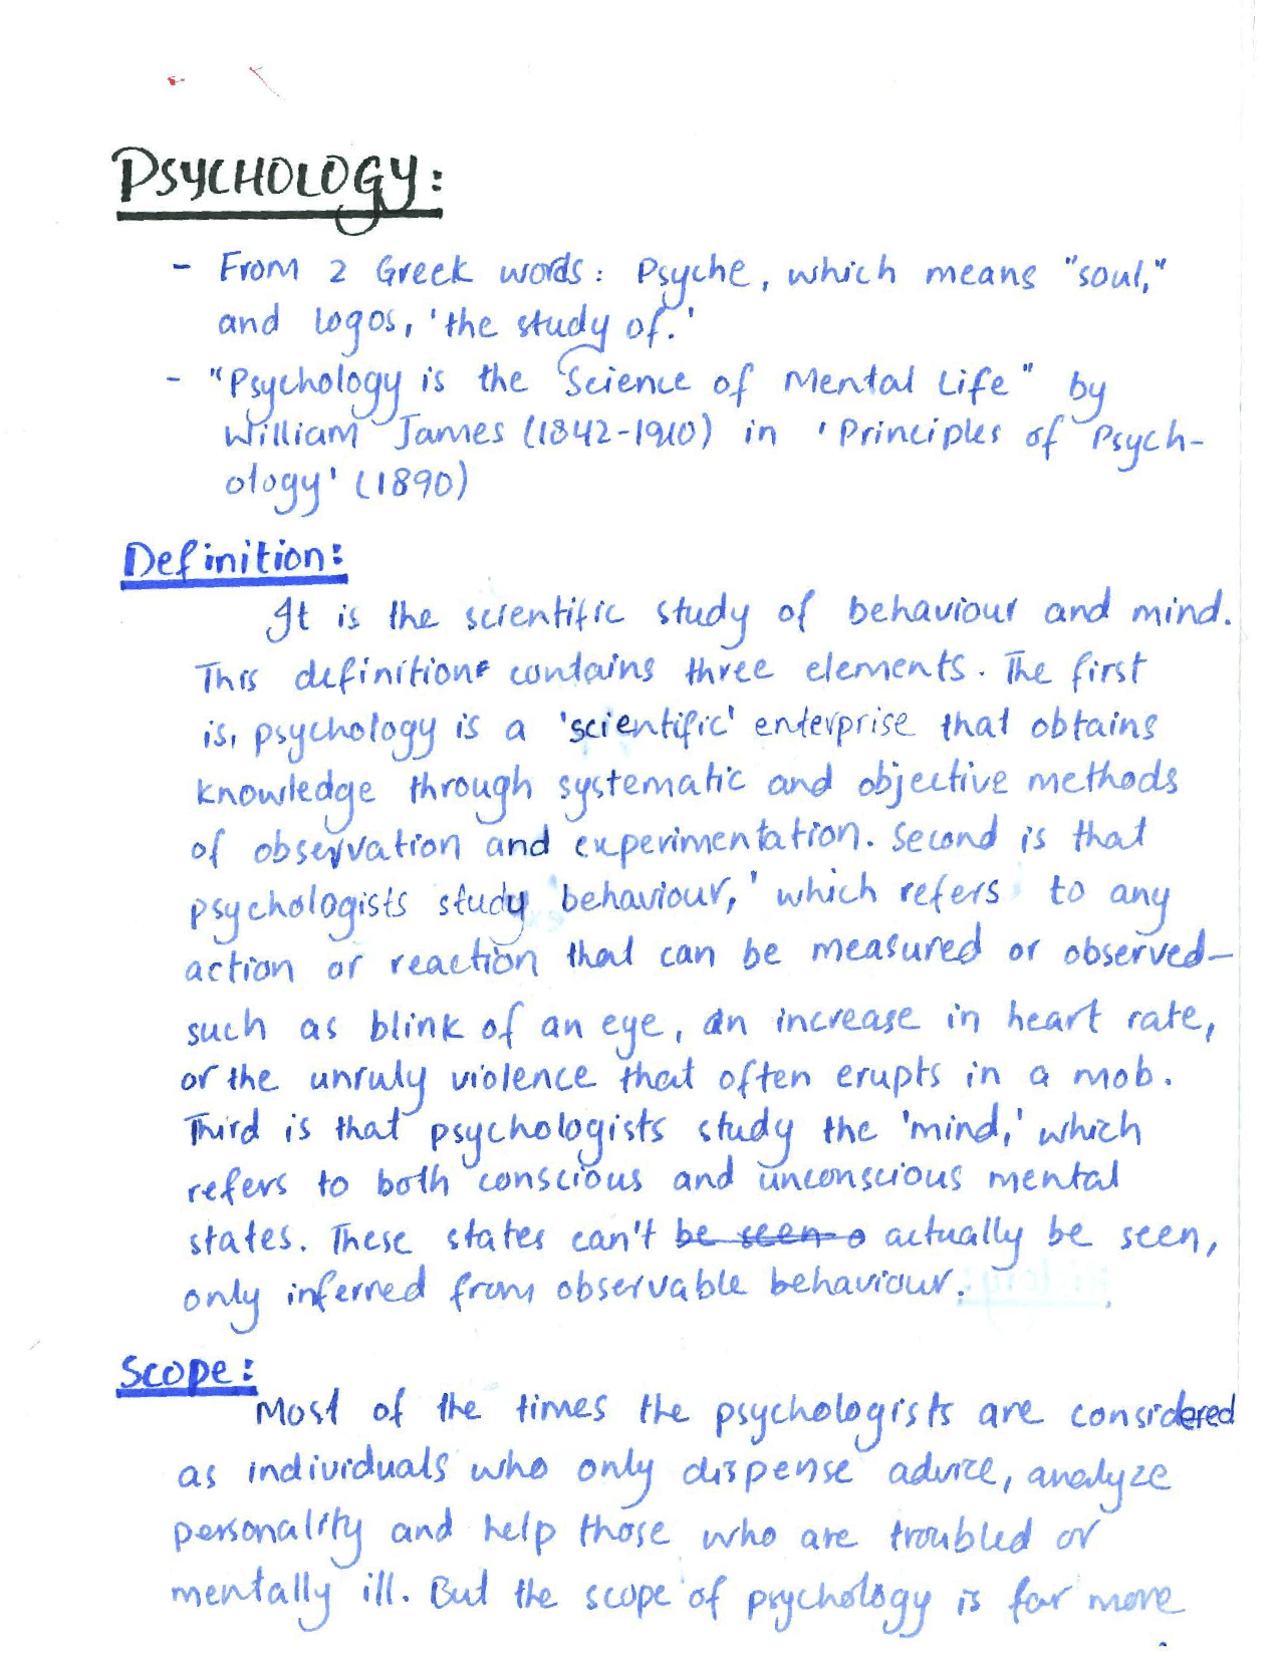 PSYCHOLOGY:
- From 2 Greek words: Psyche, which means "soul,"
and logos, 'the study of.'
- "Psychology is the Science of Mental Life" by
William James (1842-1910) in 'Principles of Psych-
ology' (1890)
Definition:
It is the scientific study of behaviour and mind.
This definition contains three elements. The first
is, psychology is a 'scientific' enterprise that obtains
knowledge through systematic and objective methods
of observation and experimentation. Second is that
psychologists study 'behaviour,' which refers to any
action or reaction that can be measured or observed—
such as blink of an eye, an increase in heart rate,
or the unruly violence that often erupts in a mob.
Third is that psychologists study the 'mind,' which
refers to both conscious and unconscious mental
states. These states can't be seen o actually be seen,
only inferred from observable behaviour.
Scope:
Most of the times the psychologists are considered
as individuals who only dispense advice, analyze
personality and help those who are troubled or
mentally ill. But the scope of psychology is far more